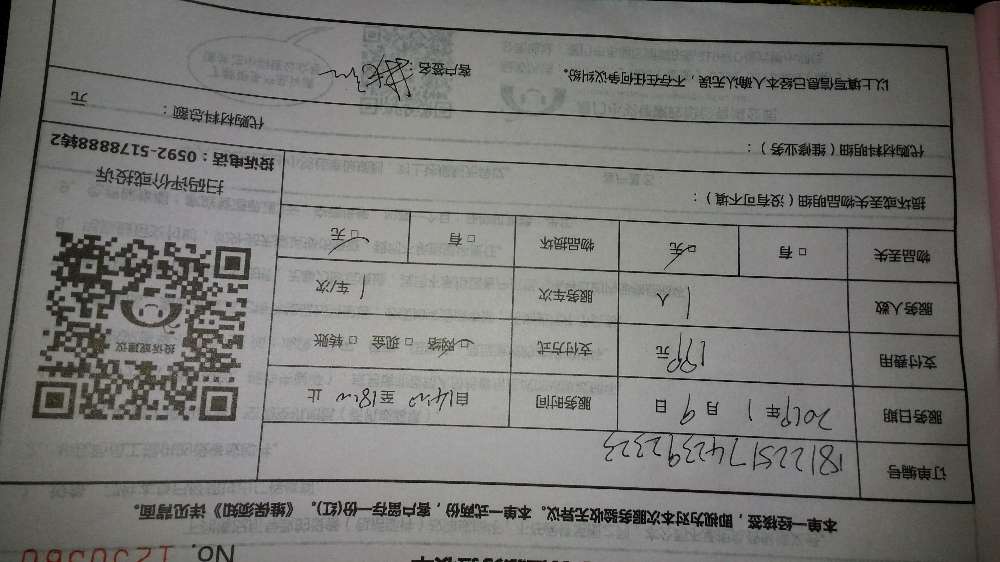 No. 1230560
本单一经核签，即视为对本次服务验收无异议。本单一式两份，客户留存一份(红)。《维保须知》详见背面。
订单编号 181225174239 2323
服务日期 2019年 1 月 9 日 服务时间 自14:00 至18:00 止
支付费用 199元 支付方式 ☑网络 □现金 □转账
服务人数 1 人 服务车次 1 车/次
物品丢失 □有 ☑无 物品损坏 □有 ☑无
投诉或建议
扫码评价或投诉
投诉电话：0592-5178888转2
损坏或丢失物品明细（没有可不填）：
代购材料明细（维修业务）：
代购材料总额： 元
以上填写信息已经本人确认无误，不存在任何争议纠纷。 客户签名：